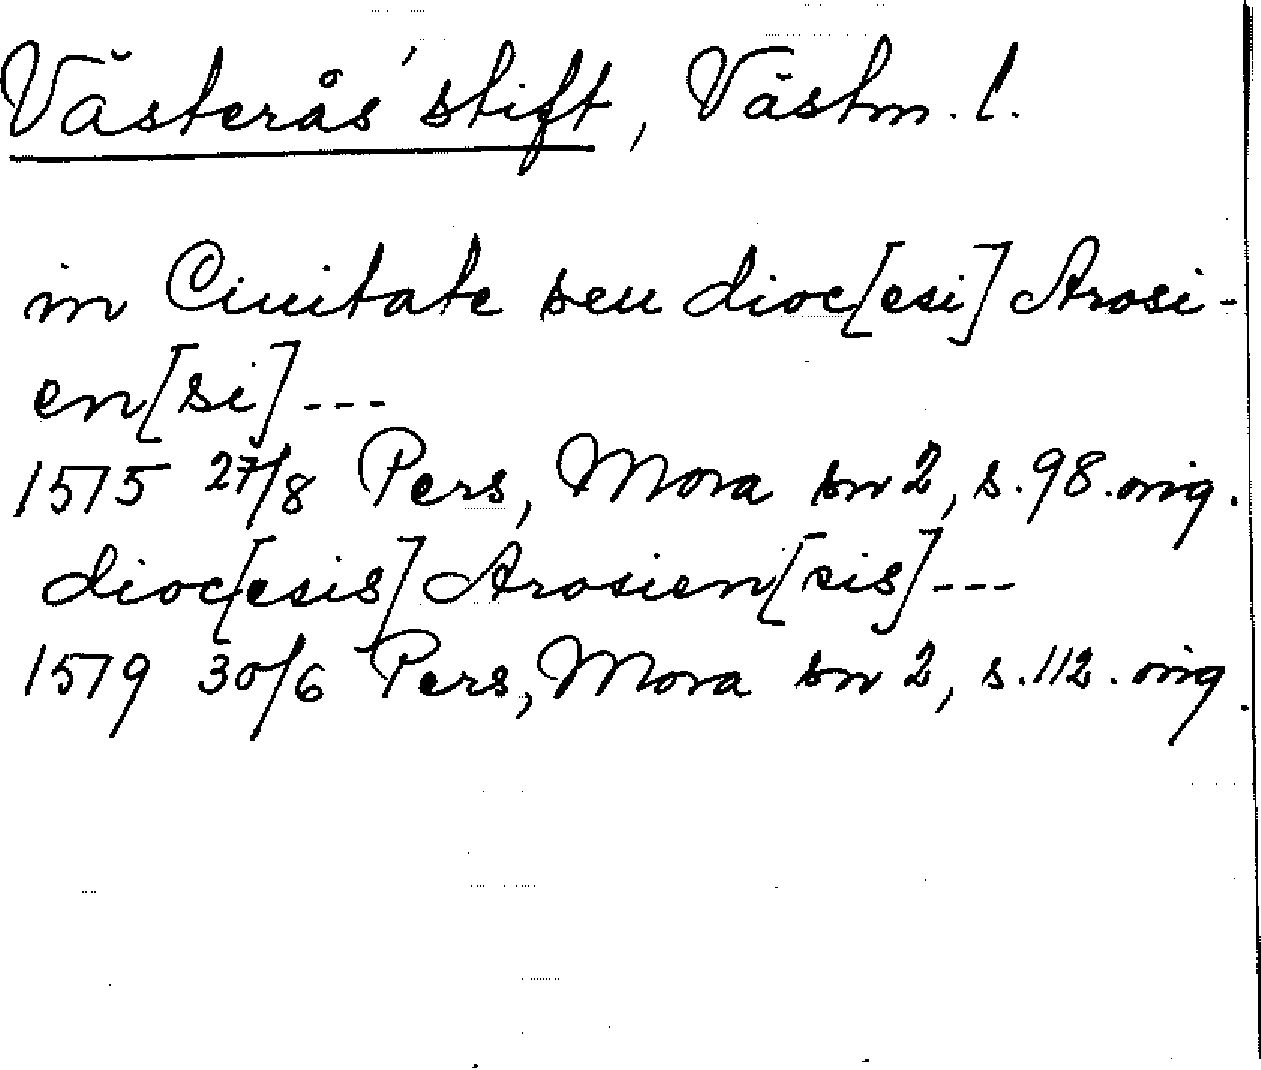 Västerås' stift, Västm. l.
in Ciuitate seu dioc[esi] Arosi-
en[si]---
1575 27/8 Pers, Mora sn 2, s. 98. orig.
dioc[esis] Arosien[sis]---
1579 30/6 Pers, Mora sn 2, s. 112. orig.